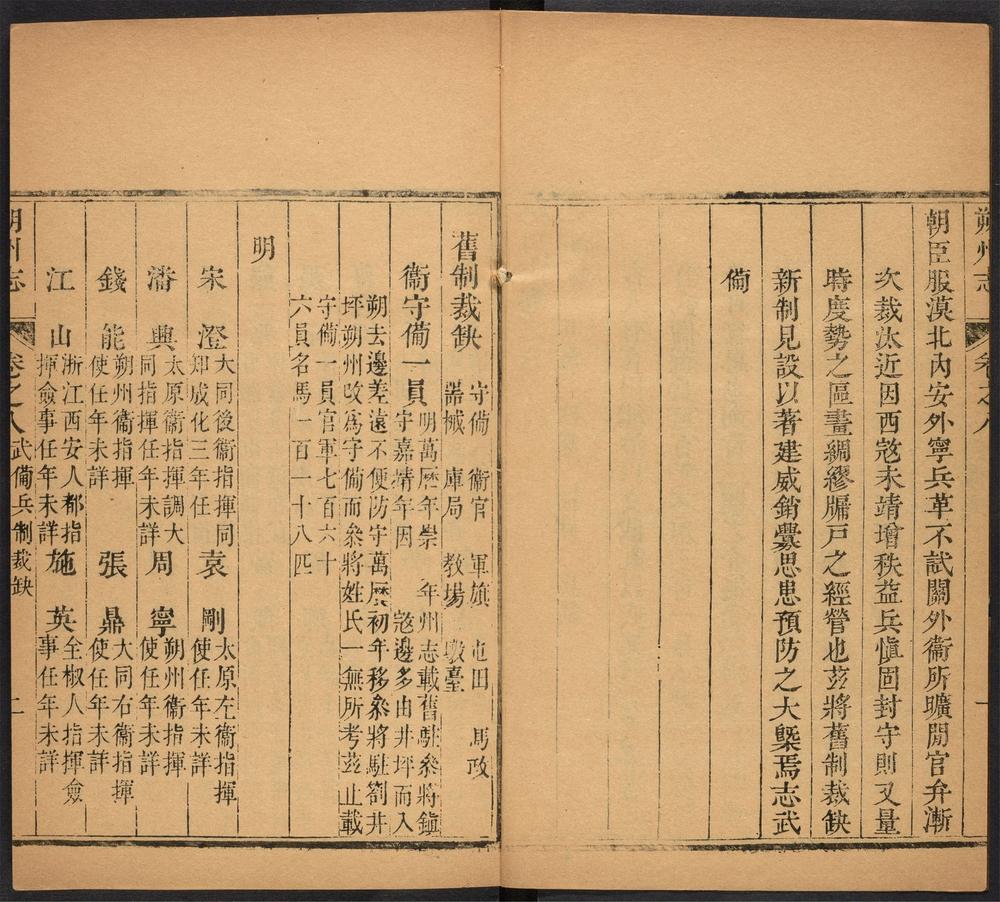 朔州志 卷之八 一
朝臣服漠北內安外寧兵革不試關外衞所曠閒官弁漸
次裁汰近因西宼未靖增秩益兵愼固封守則又量
時度勢之區畫綢繆牖戶之經營也茲將舊制裁缺
新制見設以著建威銷釁思患預防之大槩焉志武
備
舊制裁缺
守備 衞官 軍旗 屯田 馬政
器械 庫局 教場 墩臺
衞守備一員
明萬曆年崇 年州志載舊駐叅將鎭
守嘉靖年因 宼邊多由井坪而入
朔去邊差遠不便防守萬曆初年移叅將駐劄井
坪朔州改爲守備而叅將姓氏一無所考茲止載
守備一員官軍七百六十
六員名馬一百一十八匹
明
宋澄
大同後衞指揮同
知成化三年任
袁剛
太原左衞指揮
使任年未詳
潘興
太原衞指揮調大
同指揮任年未詳
周寧
朔州衞指揮
使任年未詳
錢能
朔州衞指揮
使任年未詳
張鼎
大同右衞指揮
使任年未詳
江山
浙江西安人都指
揮僉事任年未詳
施英
全椒人指揮僉
事任年未詳
朔州志 卷之八 武備兵制裁缺 二